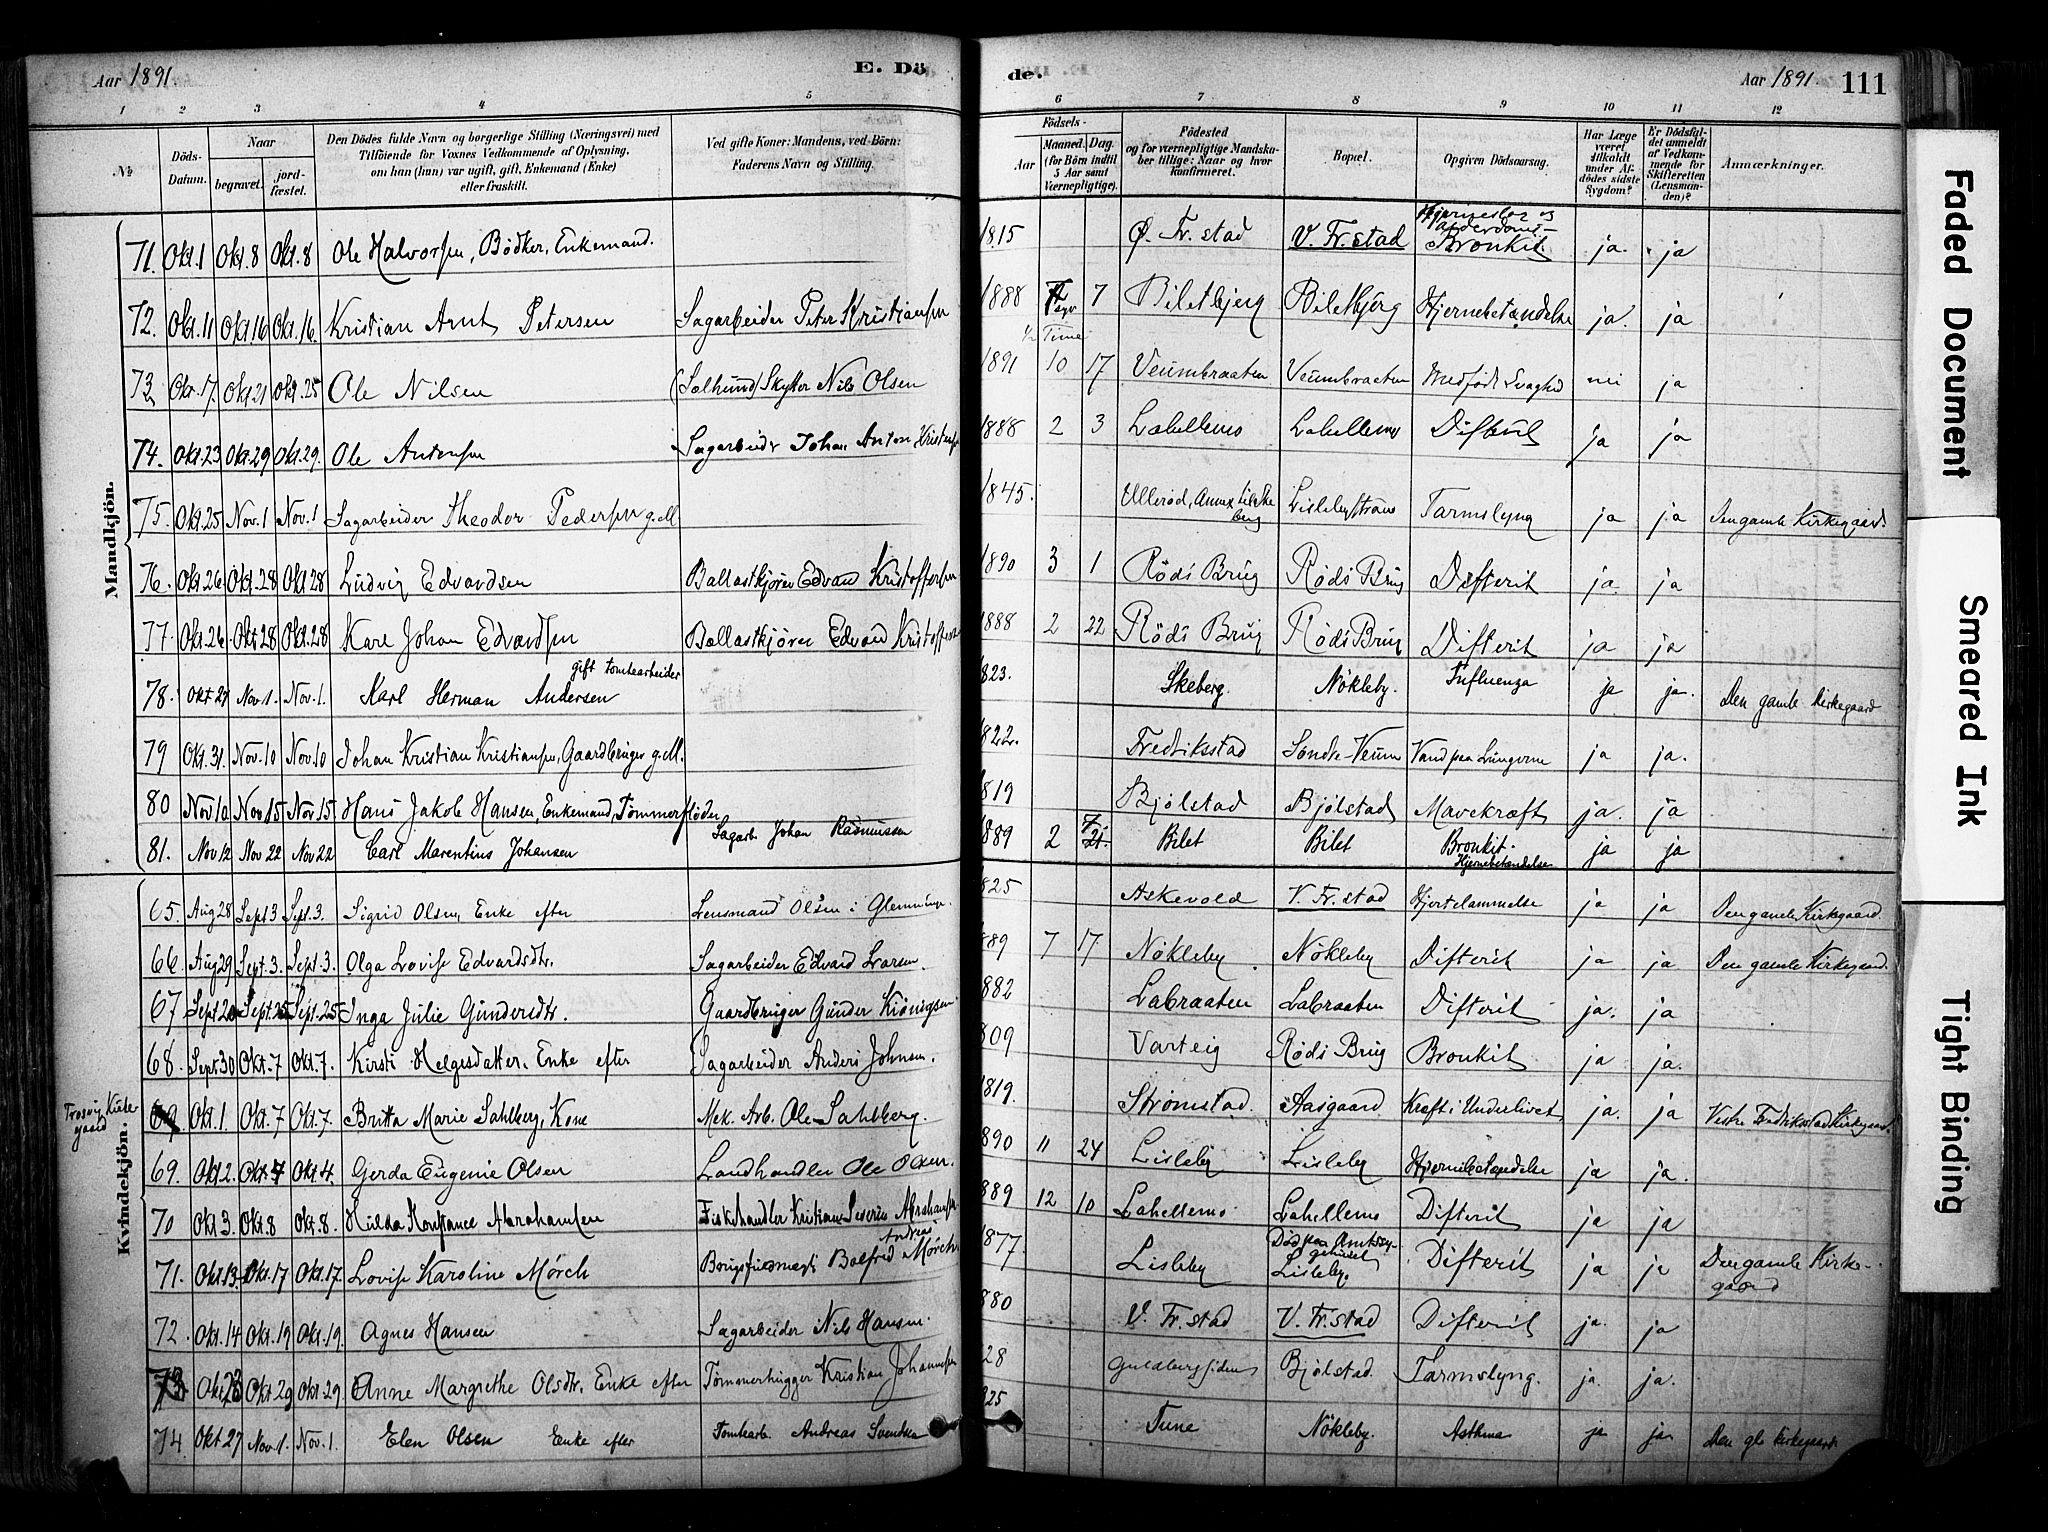 Aar 1891. E. Dö
de. Aar 1891. 111
1 2 3 4 5
6 7 8 9 10 11 12
№ Döds-Datum. Naar begravet. jord-fæstet. Den Dödes fulde Navn og borgerlige Stilling (Næringsvei) med Tilföiende for Voxnes Vedkommende af Oplysning, om han (hun) var ugift, gift, Enkemand (Enke) eller fraskilt. Ved gifte Koner: Mandens, ved Börn: Faderens Navn og Stilling.
Födsels- Aar Maaned. Dag. (for Börn indtil 5 Aar samt Værnepligtige). Födested og for værnepligtige Mandskaber tillige: Naar og hvor konfirmeret. Bopæl. Opgiven Dödsaarsag. Har Læge været tilkaldt under Afdödes sidste Sygdom? Er Dödsfaldet anmeldt af Vedkommende for Skifteretten (Lensmanden)? Anmærkninger.
Mandkjön.
71. Okt. 1 Okt. 8 Okt. 8 Ole Halvorsen, Bödker, Enkemand. 1815 Ø. Fr.stad V. Fr.stad Bronkit. ja. ja
72. Okt. 11 Okt 16 Okt. 16. Kristian Arnt Petersen Sagarbeider Peter Kristiansen 1888 7 Biletbjerg Biletbjerg Hjernebetændelse ja. ja
73. Okt. 17. Okt 21 Okt. 25 Ole Nilsen (Sælhund) Skytter Nils Olsen 1891 10 17 Veumbraaten Veumbraaten Medfødt Svaghed nei ja
½ Time
74. Okt 23 Okt. 29 Okt. 29. Ole Antonsen Sagarbeider Johan Anton Kristensen 1888 2 3 Lahellemo Lahellemo Difterit ja ja
75. Okt. 25 Nov. 1 Nov. 1 Sagarbeider Theodor Pedersen g.M. 1845. Ullerød, Annex til Skeberg Tarmslyng ja ja Den gamle Kirkegaard.
76. Okt. 26 Okt. 28 Okt 28 Ludvig Edvardsen Ballastkjører Edvard Kristoffersen 1890 3 1 Röds Brug Röds Brug Difterit ja. ja
77. Okt. 26. Okt 28 Okt. 28 Karl Johan Edvardsen Ballastkjører Edvard Kristoffersen 1888 2 22 Röds Brug Röds Brug Difterit ja ja
78. Okt 27 Nov. 1. Nov. 1. Karl Herman Andersen gift tomtearbeider 823. Skeberg. Nökleby. Influenza ja ja. Den gamle Kirkegaard
79 Okt. 31. Nov. 10 Nov. 10 Johan Kristian Kristiansen, Gaardbruger g.M. 822. Fredriksstad Søndre-Veum Vand paa Lungerne ja ja.
80 Nov 10 Nov 15 Nov. 15 Hans Jakob Hansen, Enkemand, Tømmerfløder 819 Bjölstad Bjölstad Mavekræft ja. ja
81. Nov 12 Nov 22 Nov 22 Carl Marentius Johansen Sagarb. Johan Rasmussen 889 2 21. Bilet Bilet Bronkit. Hjernebetændelse ja ja
Kvindekjön.
65. Aug 28 Sept 3 Sept. 3. Sigrid Olsen, Enke efter Lensmand Olsen i Glemminge. 825 Askevold V. Fr.stad Hjertelammelse ja ja Den gamle Kirkegaard.
66 Aug 29 Sept. 3. Sept. 3. Olga Lovise Edvardsdtr. Sagarbeider Edvard Larsen. 889 7 17. Nökleby Nökleby Difterit ja ja Den gamle Kirkegaard.
67 Sept 20 Sept. 25 Sept. 25 Inga Julie Gundersdtr. Gaardbruger Gunder Kiönigsen 882 Labraaten Labraaten Difterit ja. ja
68. Sept 30 Okt. 7 Okt. 7. Kirsti Helgesdatter, Enke efter Sagarbeider Anders Johnsen. 809 Varteig Röds Brug Bronkit ja ja.
Trosvig Kirkegaard 69. Okt. 1. Okt. 7 Okt. 7. Britta Marie Sahlberg, Kone Mek. Arb. Ole Sahlberg. 1819. Strömstad. Aasgaard Kræft i Underlivet ja. ja Vestre Fredriksstad Kirkegaard.
69. Okt 2. Okt. 4 Okt 4. Gerda Eugenie Olsen Landhandler Ole Olsen. 890 11 24 Lisleby Lisleby Hjernebetændelse ja ja.
70 Okt 3. Okt. 8 Okt. 8. Hilda Konstance Abrahamsen Fiskehandler Kristian Severin Abrahamsen 889 12 10 Lahellemo Lahellemo Difterit ja ja
71. Okt. 13 Okt. 17 Okt. 17. Lovise Karoline Mörch Brugsfuldmægt. Balfred Andreas Mörch 1877 Lisleby Död paa Amtssygehuset Lisleby. Difterit ja ja Den gamle Kirkegaard
72. Okt. 14 Okt. 19 Okt. 19. Agnes Hansen Sagarbeider Nils Hansen. 880 V. Fr. stad V. Fr. stad Difterit ja. ja
73 Okt 23 Okt 29 Okt. 29. Anne Margrethe Olsdtr. Enke efter Tømmerhugger Kristian Johannesen 28 Guldbergsiden Bjölstad. Tarmslyng. ja. ja.
74 Okt 27 Nov. 1. Nov. 1. Elen Olsen Enke efter Tomtearb. Andreas Svendsen 825 Tune Nökleby. Asthma ja ja Den gl. Kirkegaard
Faded Document
Smeared Ink
Tight Binding